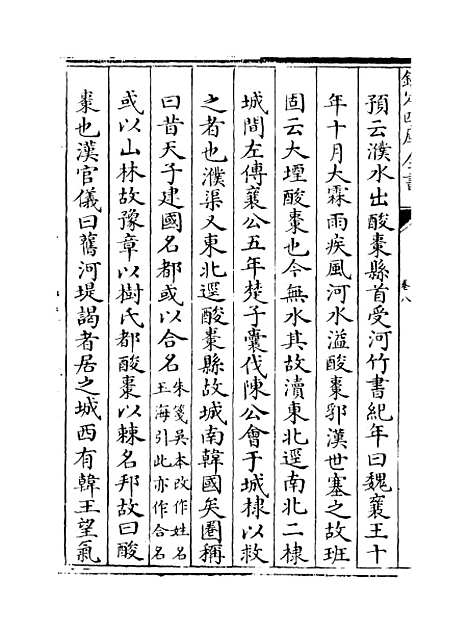 欽定四庫全書
卷八
預云濮水出酸棗縣首受河竹書紀年曰魏襄王十
年十月大霖雨疾風河水溢酸棗郛漢世塞之故班
固云大堙酸棗也今無水其故瀆東北逕南北二棣
城間左傳襄公五年楚子囊伐陳公會于城棣以救
之者也濮渠又東北逕酸棗縣故城南韓國矣圈稱
曰昔天子建國名都或以合名朱箋吳本改作姓名
王海引此亦作合名
或以山林故豫章以樹氏都酸棗以棘名邦故曰酸
棗也漢官儀曰舊河堤謁者居之城西有韓王望氣